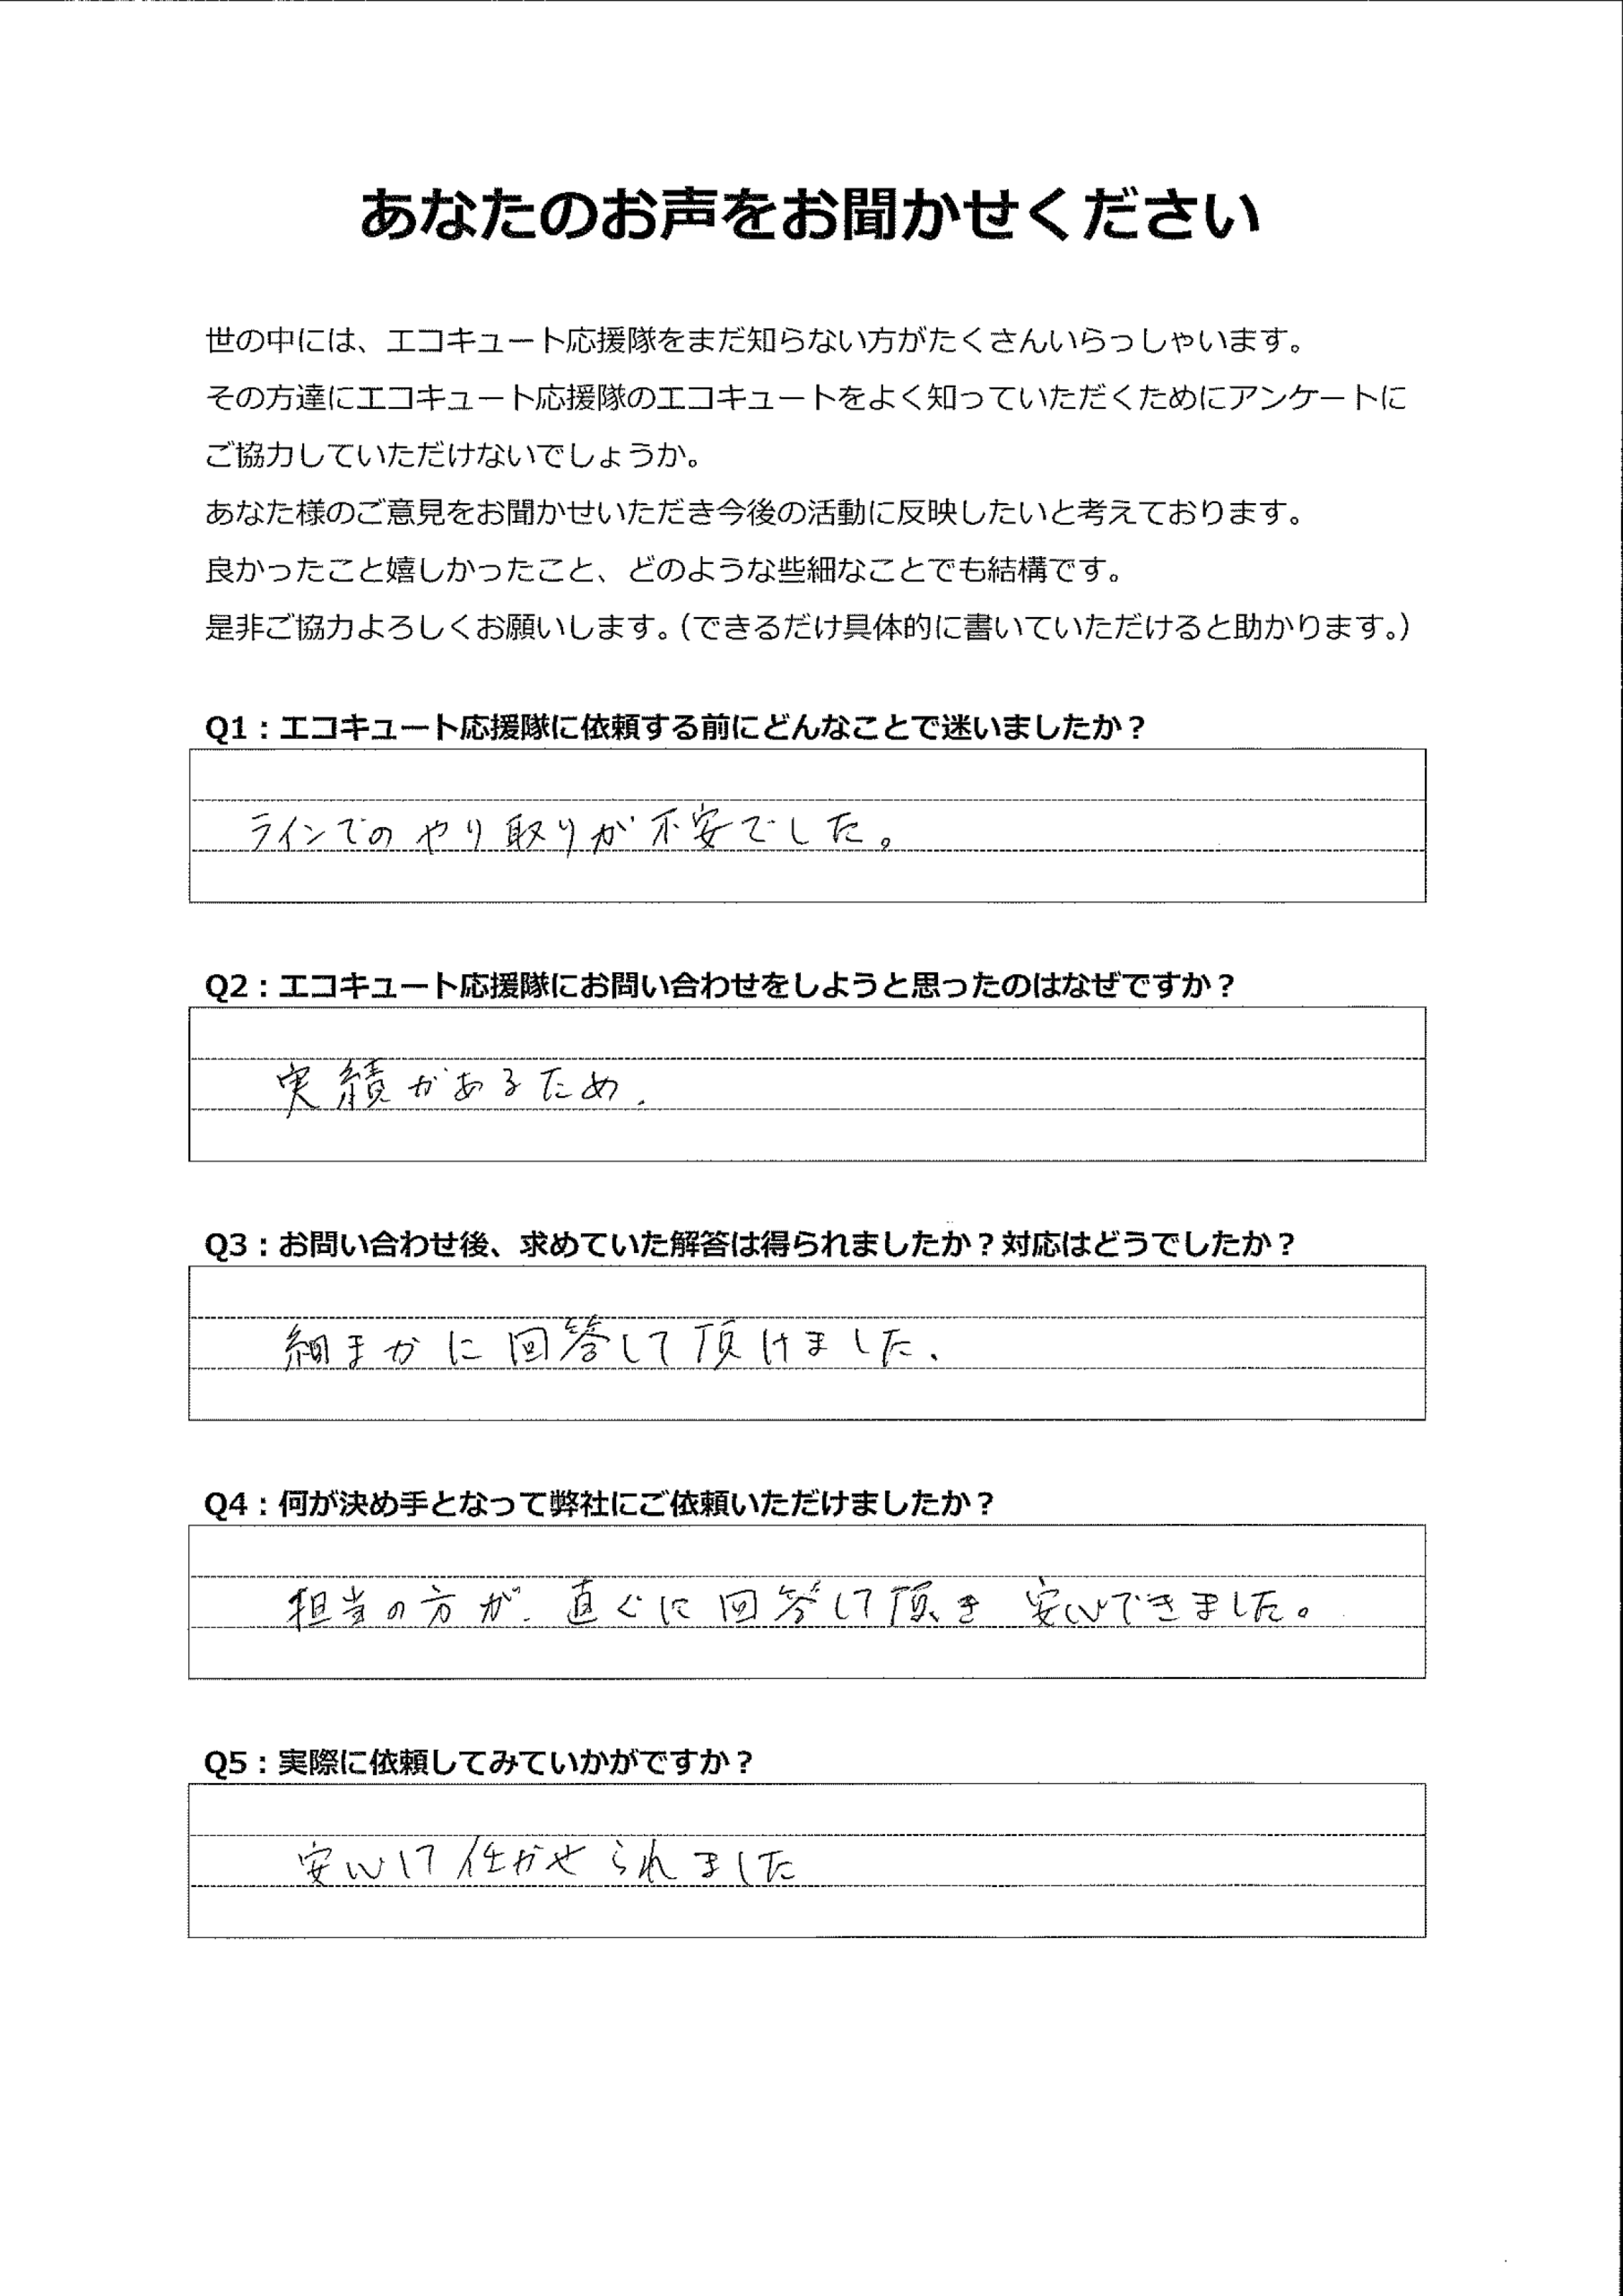 あなたのお声をお聞かせください
世の中には、エコキュート応援隊をまだ知らない方がたくさんいらっしゃいます。
その方達にエコキュート応援隊のエコキュートをよく知っていただくためにアンケートに
ご協力していただけないでしょうか。
あなた様のご意見をお聞かせいただき今後の活動に反映したいと考えております。
良かったこと嬉しかったこと、どのような些細なことでも結構です。
是非ご協力よろしくお願いします。（できるだけ具体的に書いていただけると助かります。）
Q1：エコキュート応援隊に依頼する前にどんなことで迷いましたか？
ラインでのやり取りが不安でした。
Q2：エコキュート応援隊にお問い合わせをしようと思ったのはなぜですか？
実績があるため.
Q3：お問い合わせ後、求めていた解答は得られましたか？対応はどうでしたか？
細まかに回答して頂けました、
Q4：何が決め手となって弊社にご依頼いただけましたか？
担当の方が、直ぐに回答して頂き 安心できました。
Q5：実際に依頼してみていかがですか？
安心して任かせられました